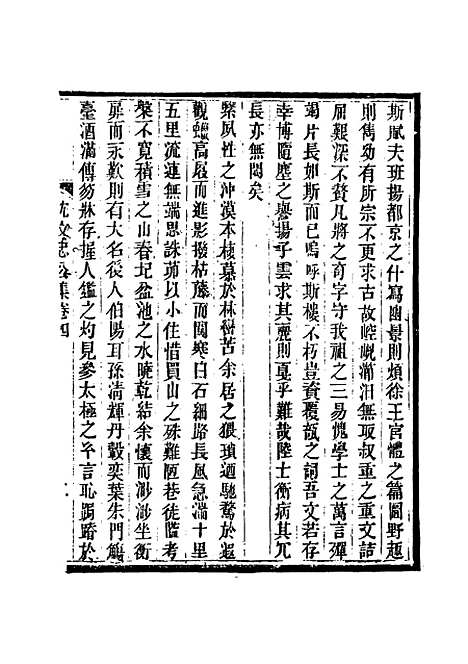 斯賦夫班揚都京之什寫幽景則煩徐王宮體之篇圖野趣
則雋劲有所宗不更求古故崆峴瀟泪無取叔重之重文詰
屈艱深不贅凡將之育字守我祖之三易愧學士之萬言殫
竭片長如斯而已嗚呼斯樓不朽豈資覆瓿之詞吾文若存
幸博隨塵之譽揚子雲求其麗則戛乎難哉陸士衡病其冗
長亦無悶矣
棨夙性之沖漠本棲慕於林巒苦余居之猥瑣迺馳騖於遐
觀蠟高屐而進影撥枯藤而闖寒白石細路長風急湍十里
五里流連無端思誅茆以小住惜買山之殊難陋巷徒儘考
槃不寬積雪之山春圮盆池之水曉乾結余懷而渺渺坐衡
扉而永歎則有大名後人伯陽耳孫淸輝丹轂奕葉朱門觴
臺酒滿傅笏牀存握人鑑之灼見參太極之予言恥跼蹐於
沈文忠公集卷四